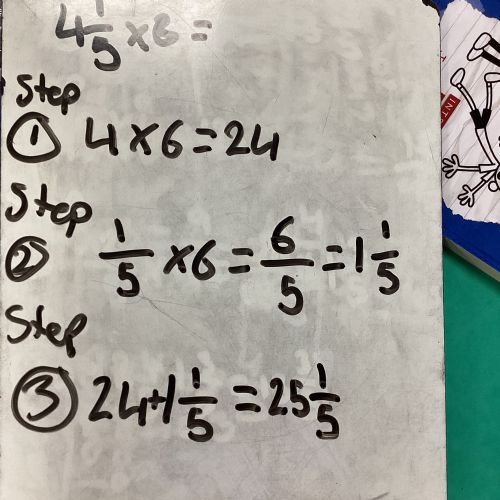 4 1/5 x 6 =
Step
① 4 x 6 = 24
Step
② 1/5 x 6 = 6/5 = 1 1/5
Step
③ 24 + 1 1/5 = 25 1/5